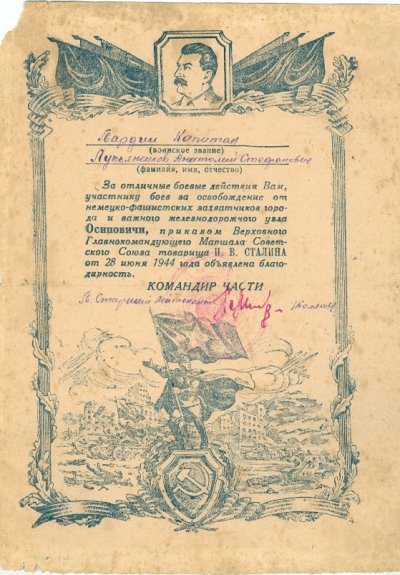 Гвардии Капитан
(воинское звание)
Лукьянчиков Анатолий Стефанович
(фамилия, имя, отчество)
За отличные боевые действия Вам,
участнику боев за освобождение от
немецко-фашистских захватчиков горо-
да и важного железнодорожного узла
Осиповичи, приказом Верховного
Главнокомандующего Маршала Совет-
ского Союза товарища И. В. СТАЛИНА
от 28 июня 1944 года объявлена благо-
дарность.
КОМАНДИР ЧАСТИ
Гв. Старший Лейтенант